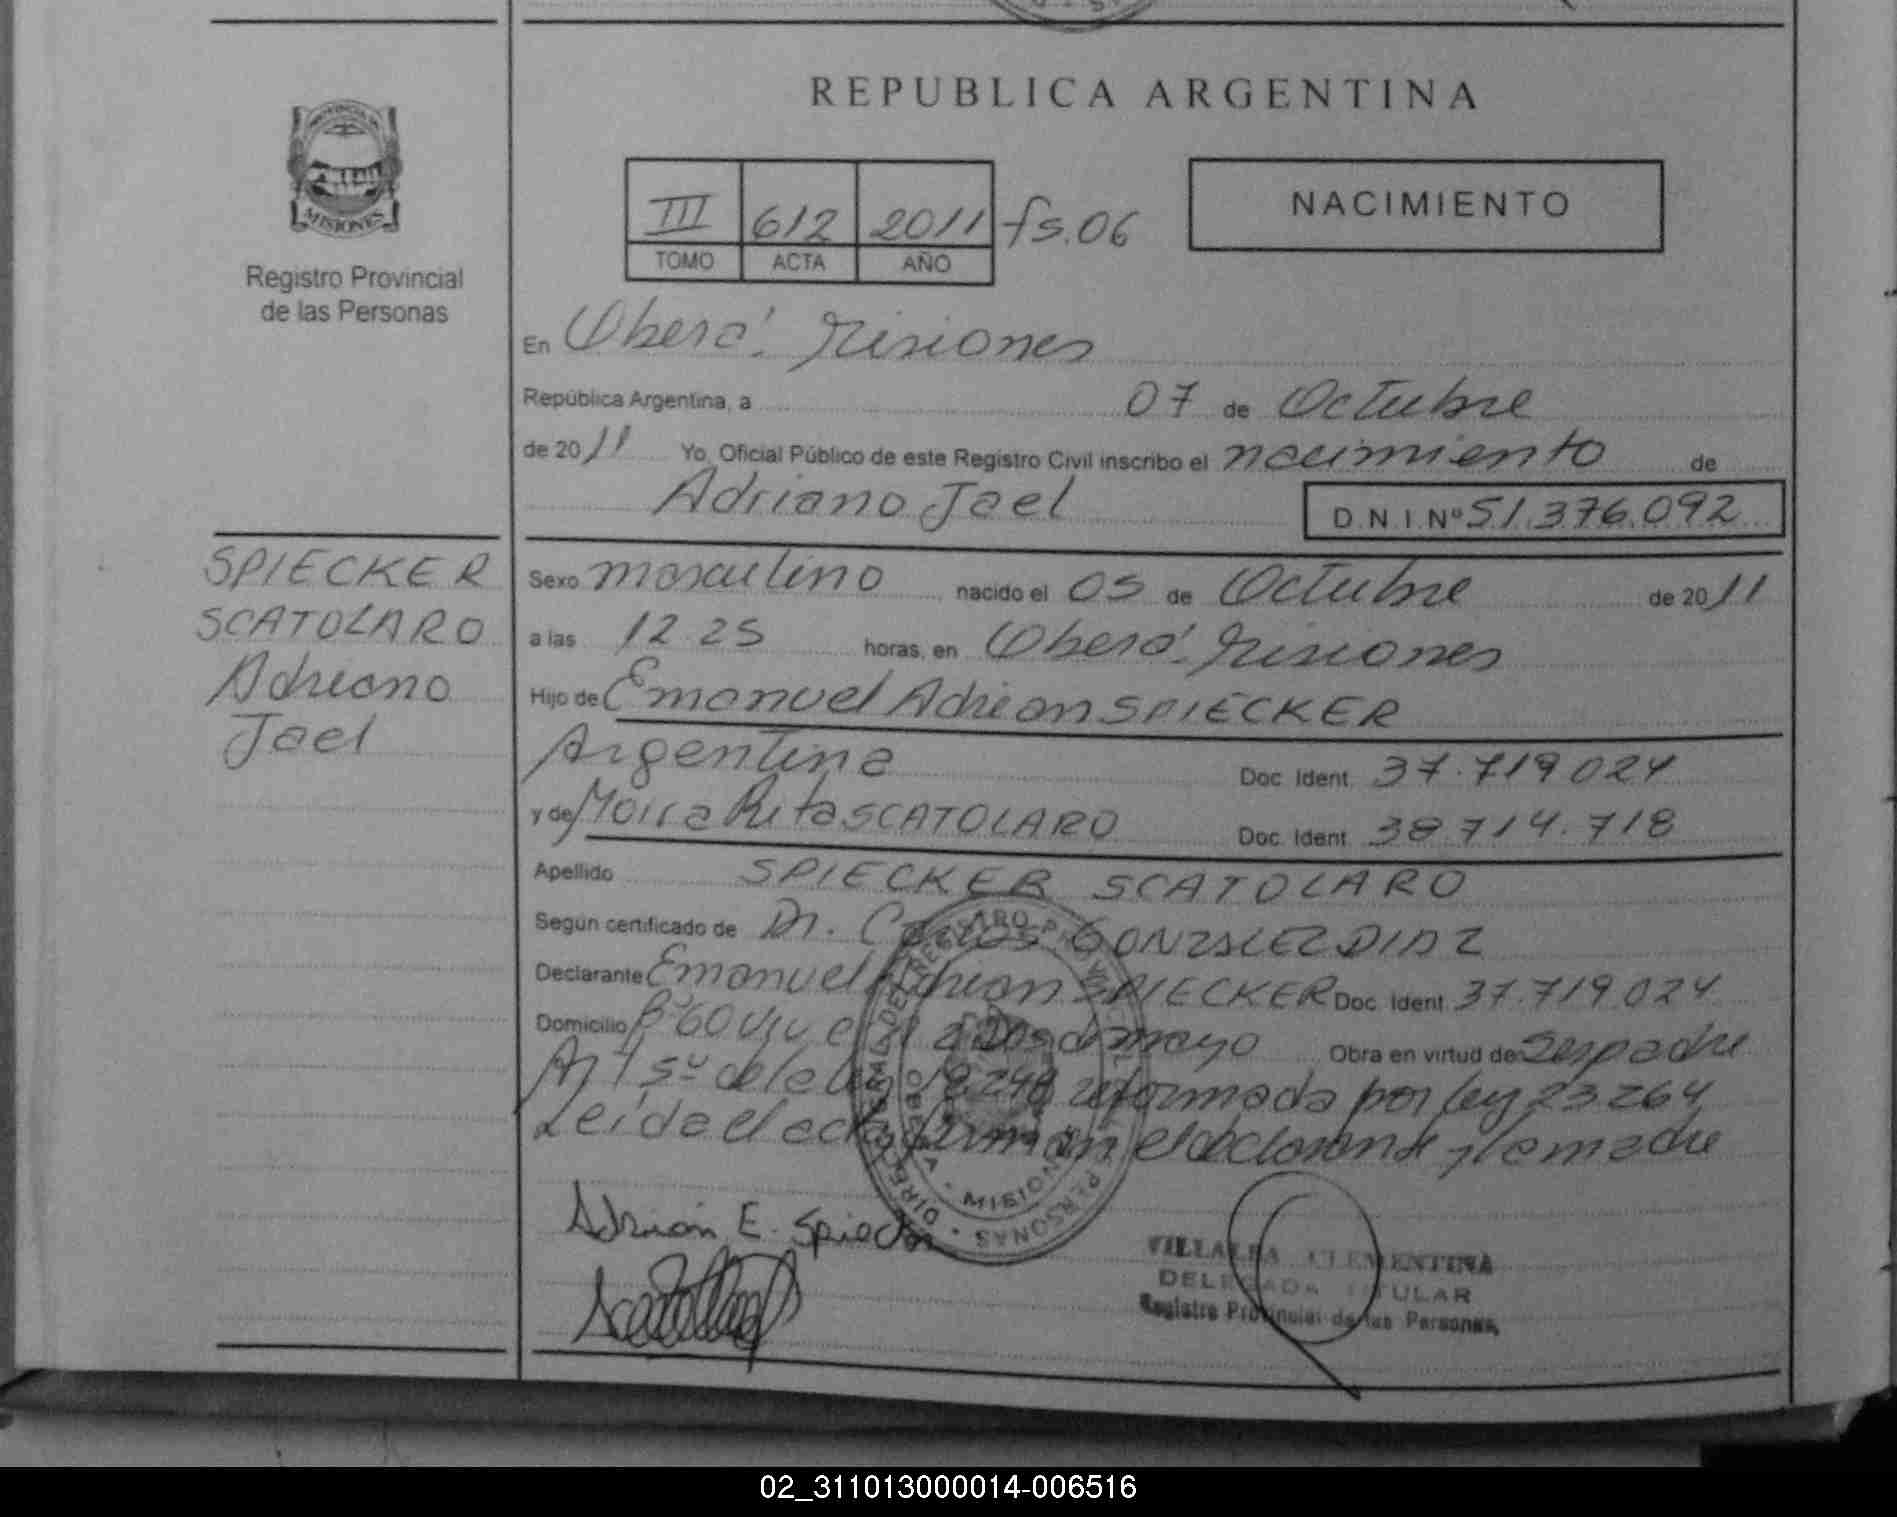 REPUBLICA ARGENTINA
PROVINCIA DE
MISIONES
Registro Provincial
de las Personas
III 612 2011 fs.06
TOMO ACTA AÑO
NACIMIENTO
En Oberá. Misiones
República Argentina, a 07 de Octubre
de 2011 Yo, Oficial Público de este Registro Civil inscribo el nacimiento de
Adriano Jael D.N.I.Nº 51.376.092
SPIECKER
SCATOLARO
Adriano
Jael
Sexo masculino nacido el 05 de Octubre de 2011
a las 12 25 horas, en Oberá. Misiones
Hijo de Emanuel Adrian SPIECKER
Argentina Doc. Ident. 37.719.024
y de Moira Rita SCATOLARO Doc. Ident. 38.714.718
Apellido SPIECKER SCATOLARO
Según certificado de Dr. Carlos GONZALEZ DIAZ
Declarante Emanuel Adrian SPIECKER Doc. Ident. 37.719.024
Domicilio Bº 60 Viv de mayo Obra en virtud de Ser padre
Art 5º de la Ley 18.248 reformada por ley 23264
Leída el acta firman el declarante y la madre
DIRECCION GENERAL DEL REGISTRO PROVINCIAL DE LAS PERSONAS
OBERA - MISIONES
Adrián E. Spiecker
VILLALBA CLEMENTINA
DELEGADA TITULAR
Registro Provincial de las Personas
02_311013000014-006516